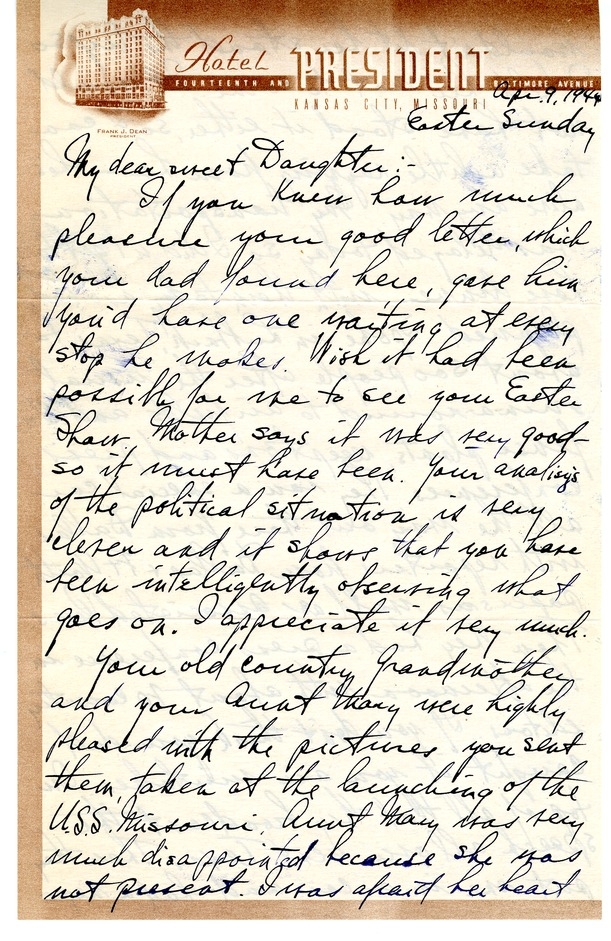 Hotel PRESIDENT
FOURTEENTH AND BALTIMORE AVENUE
KANSAS CITY, MISSOURI
FRANK J. DEAN
PRESIDENT
Apr. 9, 1944
Easter Sunday
My dear sweet Daughter:-
If you knew how much
pleasure your good letter, which
your dad found here, gave him
you'd have one waiting at every
stop he makes. Wish it had been
possible for me to see your Easter
Show. Mother says it was very good-
so it must have been. Your analisys
of the political situation is very
clever and it shows that you have
been intelligently observing what
goes on. I appreciate it very much.
Your old country Grandmother
and your Aunt Mary were highly
pleased with the pictures you sent
them, taken at the launching of the
U.S.S. Missouri. Aunt Mary was very
much disappointed because she was
not present. I was afraid her heart